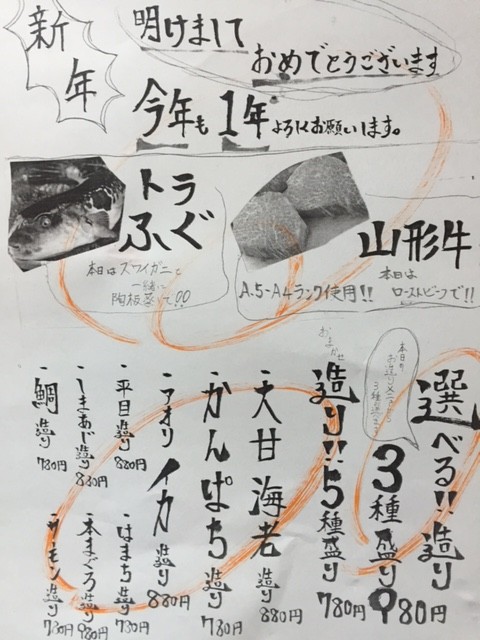 新年
明けまして
おめでとうございます
今年も1年よろしくお願いします。
トラ
ふぐ
本日はズワイガニと
一緒に
陶板蒸しで!!
山形牛
A.5-A4ランク使用!!
本日は
ローストビーフで!!
選べる!!造り
本日の
お造りメニューから
3種選べます
3種盛り 980円
おまかせ
造り!!5種盛り 780円
大甘海老造り 880円
・かんぱち造り 780円
・アオリイカ造り 880円
・平目造り 880円
・はまち造り 780円
・しまあじ造り 880円
・本まぐろ造り 980円
・鯛造り 780円
・サーモン造り 780円